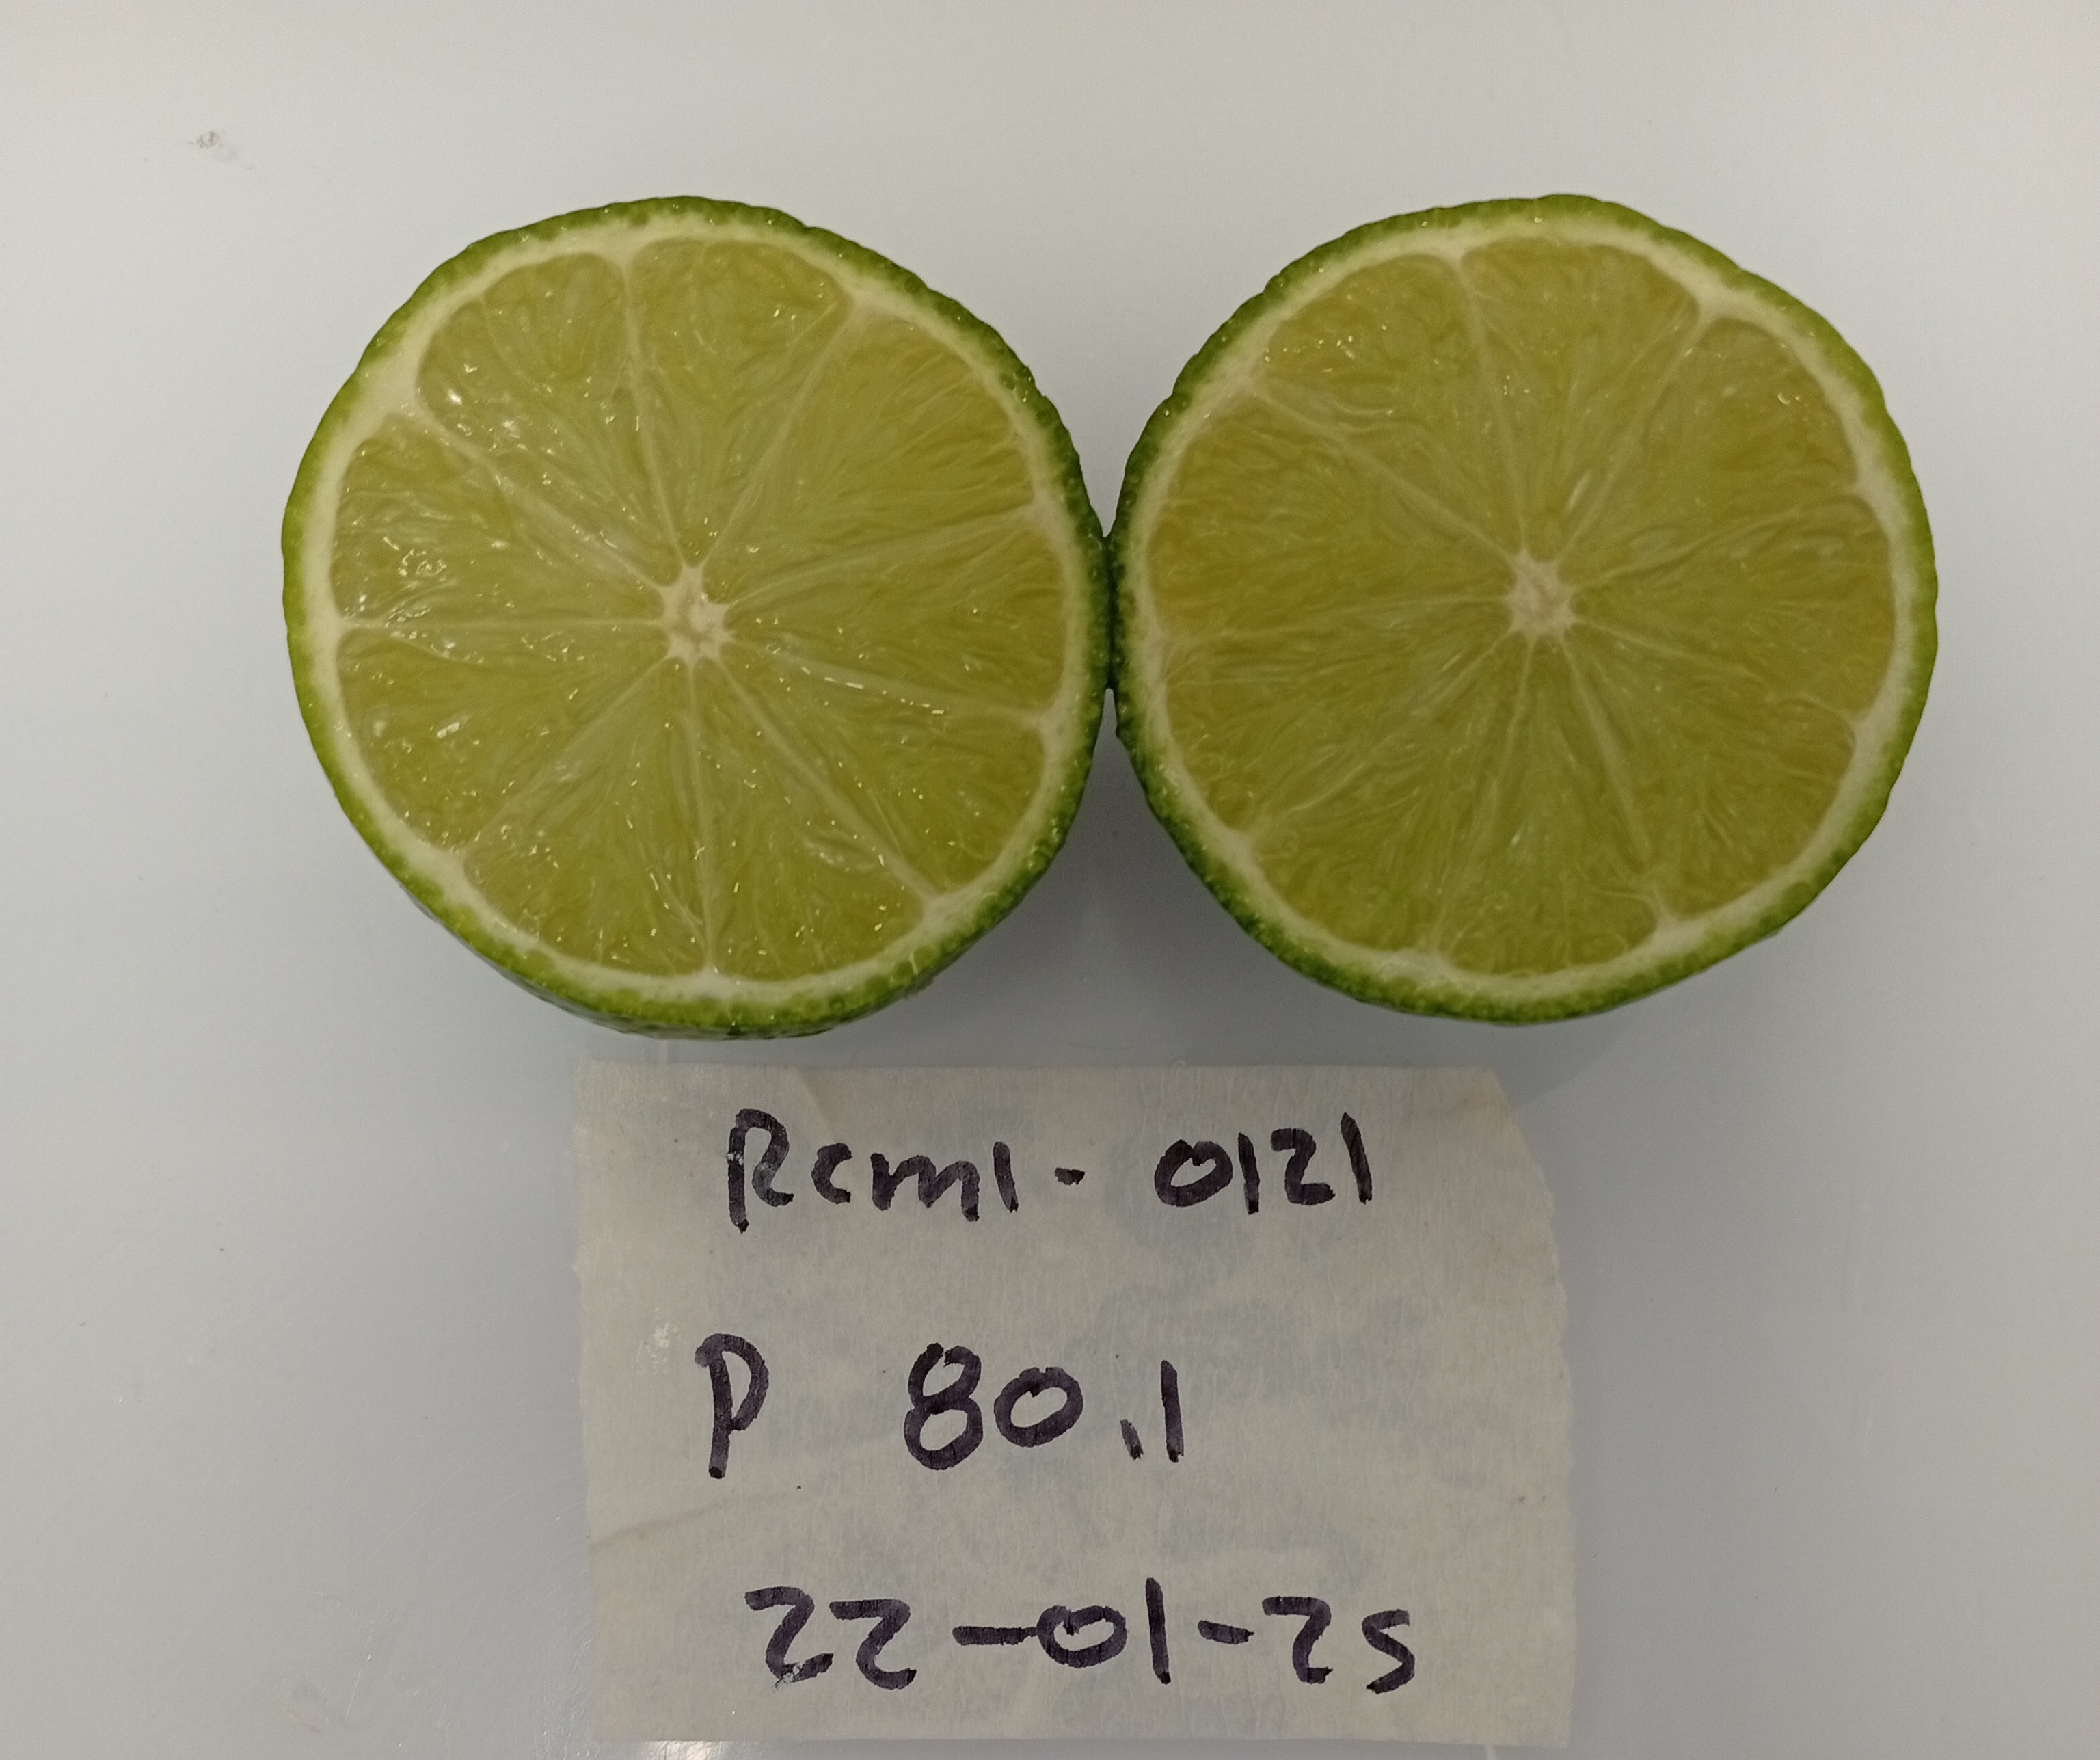 Rcm1-0121
P 80.1
22-01-25